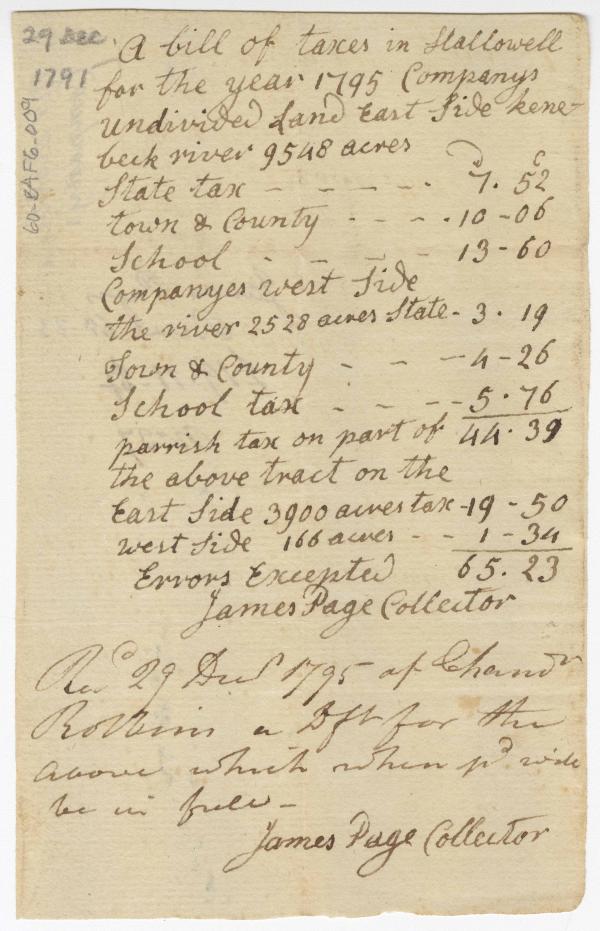 29 Dec
1791
60-BAF6-009
A bill of taxes in Hallowell
for the year 1795 Companys
undivided Land East Side kene-
beck river 9548 acres
D C
State tax - - - - - . 7. 52
town & County - - - . 10-06
School - - - - - 13-60
Companyes west Side
the river 2528 acres State - 3. 19
Town & County - - - 4-26
School tax - - - - 5.76
44.39
parrish tax on part of
the above tract on the
East Side 3900 acres tax - 19-50
west Side 166 acres - - 1-34
Errors Excepted 65.23
James Page Collector
Recd 29 Decr 1795 of Chandr
Robbins a Dft for the
above which when pd will
be in full -
James Page Collector